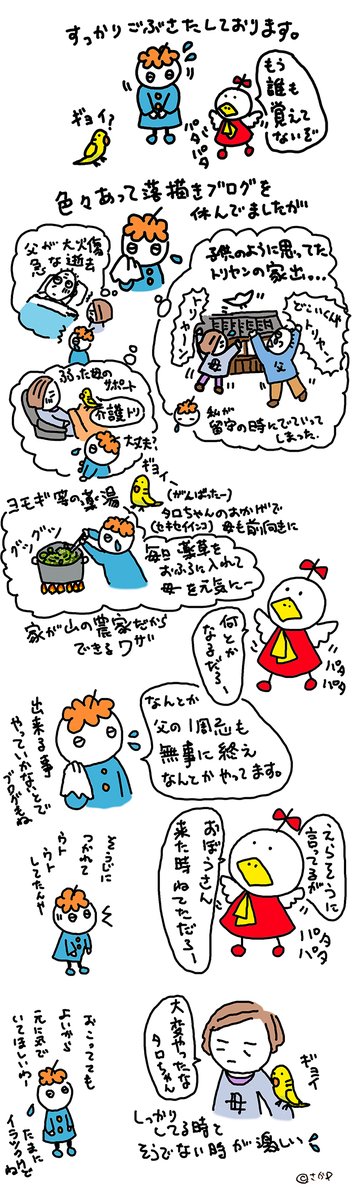 すっかりごぶさたしております。
もう
誰も
覚えて
ないぞ
パタ
パタ
ギョイ?
色々あって落描きブログを
休んでましたが
父が大火傷
急な逝去
子供のように思ってた
トリヤンの家出...
トリヤーン
どこいくんや
トリヤー!
母
父
私が
留守の時にでていって
しまった.
弱った母の
サポート
介護トリ
大丈夫?
ギョイー
(がんばったー)
タロちゃんのおかげで
(セキセイインコ)
母も前向きに
ヨモギ等の薬湯
グツグツ
毎日薬草を
おふろに入れて
母を元気にー
家が山の農家だから
できるワザ
何とか
なるだろー
パタ
パタ
なんとか
父の1周忌も
無事に終え
なんとかやってます。
出来る事
やっていかないとで
ブログもね
えらそうに
言ってるが
おぼうさん
来た時ねてただろー
パタ
パタ
そうじに
つかれて
ウト
ウト
してたんや
大変やったな
タロちゃん
ギョイ
母
しっかり
してる時と
そうでない時が激しい
おこってても
よいから
元気で
いてほしいわー
たまに
イラッつくけどね
©さかや